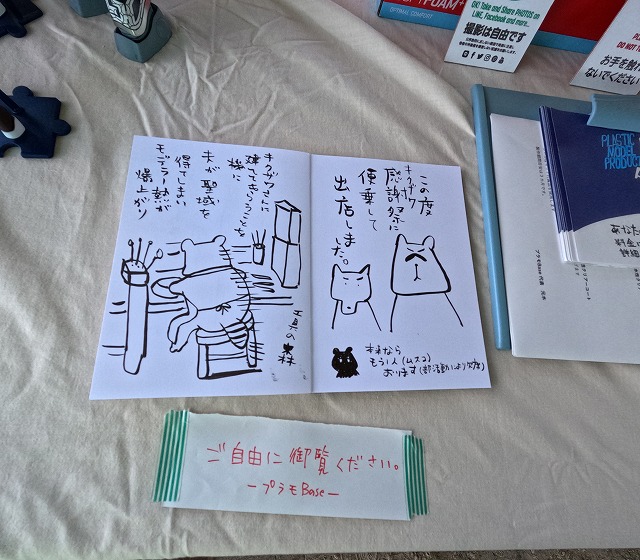 OK! Take and Share PHOTOS on
LINE, Facebook and more...
撮影は自由です
お手を触れ
ないでください
PLASTIC
MODEL
PRODUCT
あなたの
この度
キクザワ
感謝祭に
便乗して
出店しました。
本来なら
もう1人(ムスコ)
おります(部活動により欠席)
キクザワさんに
建ててもらうことを
機に
夫が聖域を
得てしまい
モデラー熱が
爆上がり
工具の森
ご自由に御覧ください。
ープラモBaseー